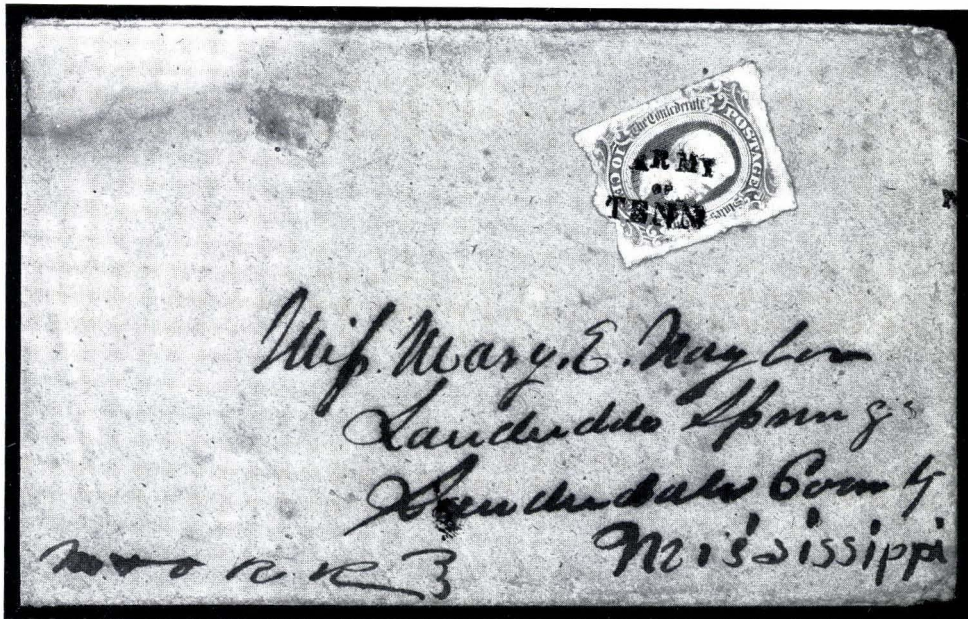 The Confederate States
POSTAGE
10 CE
ARMY
OF
TENN
Miſs. Mary. E. Naylor
Lauderdale Springs
Lauderdale County
Mississippi
M & O R R